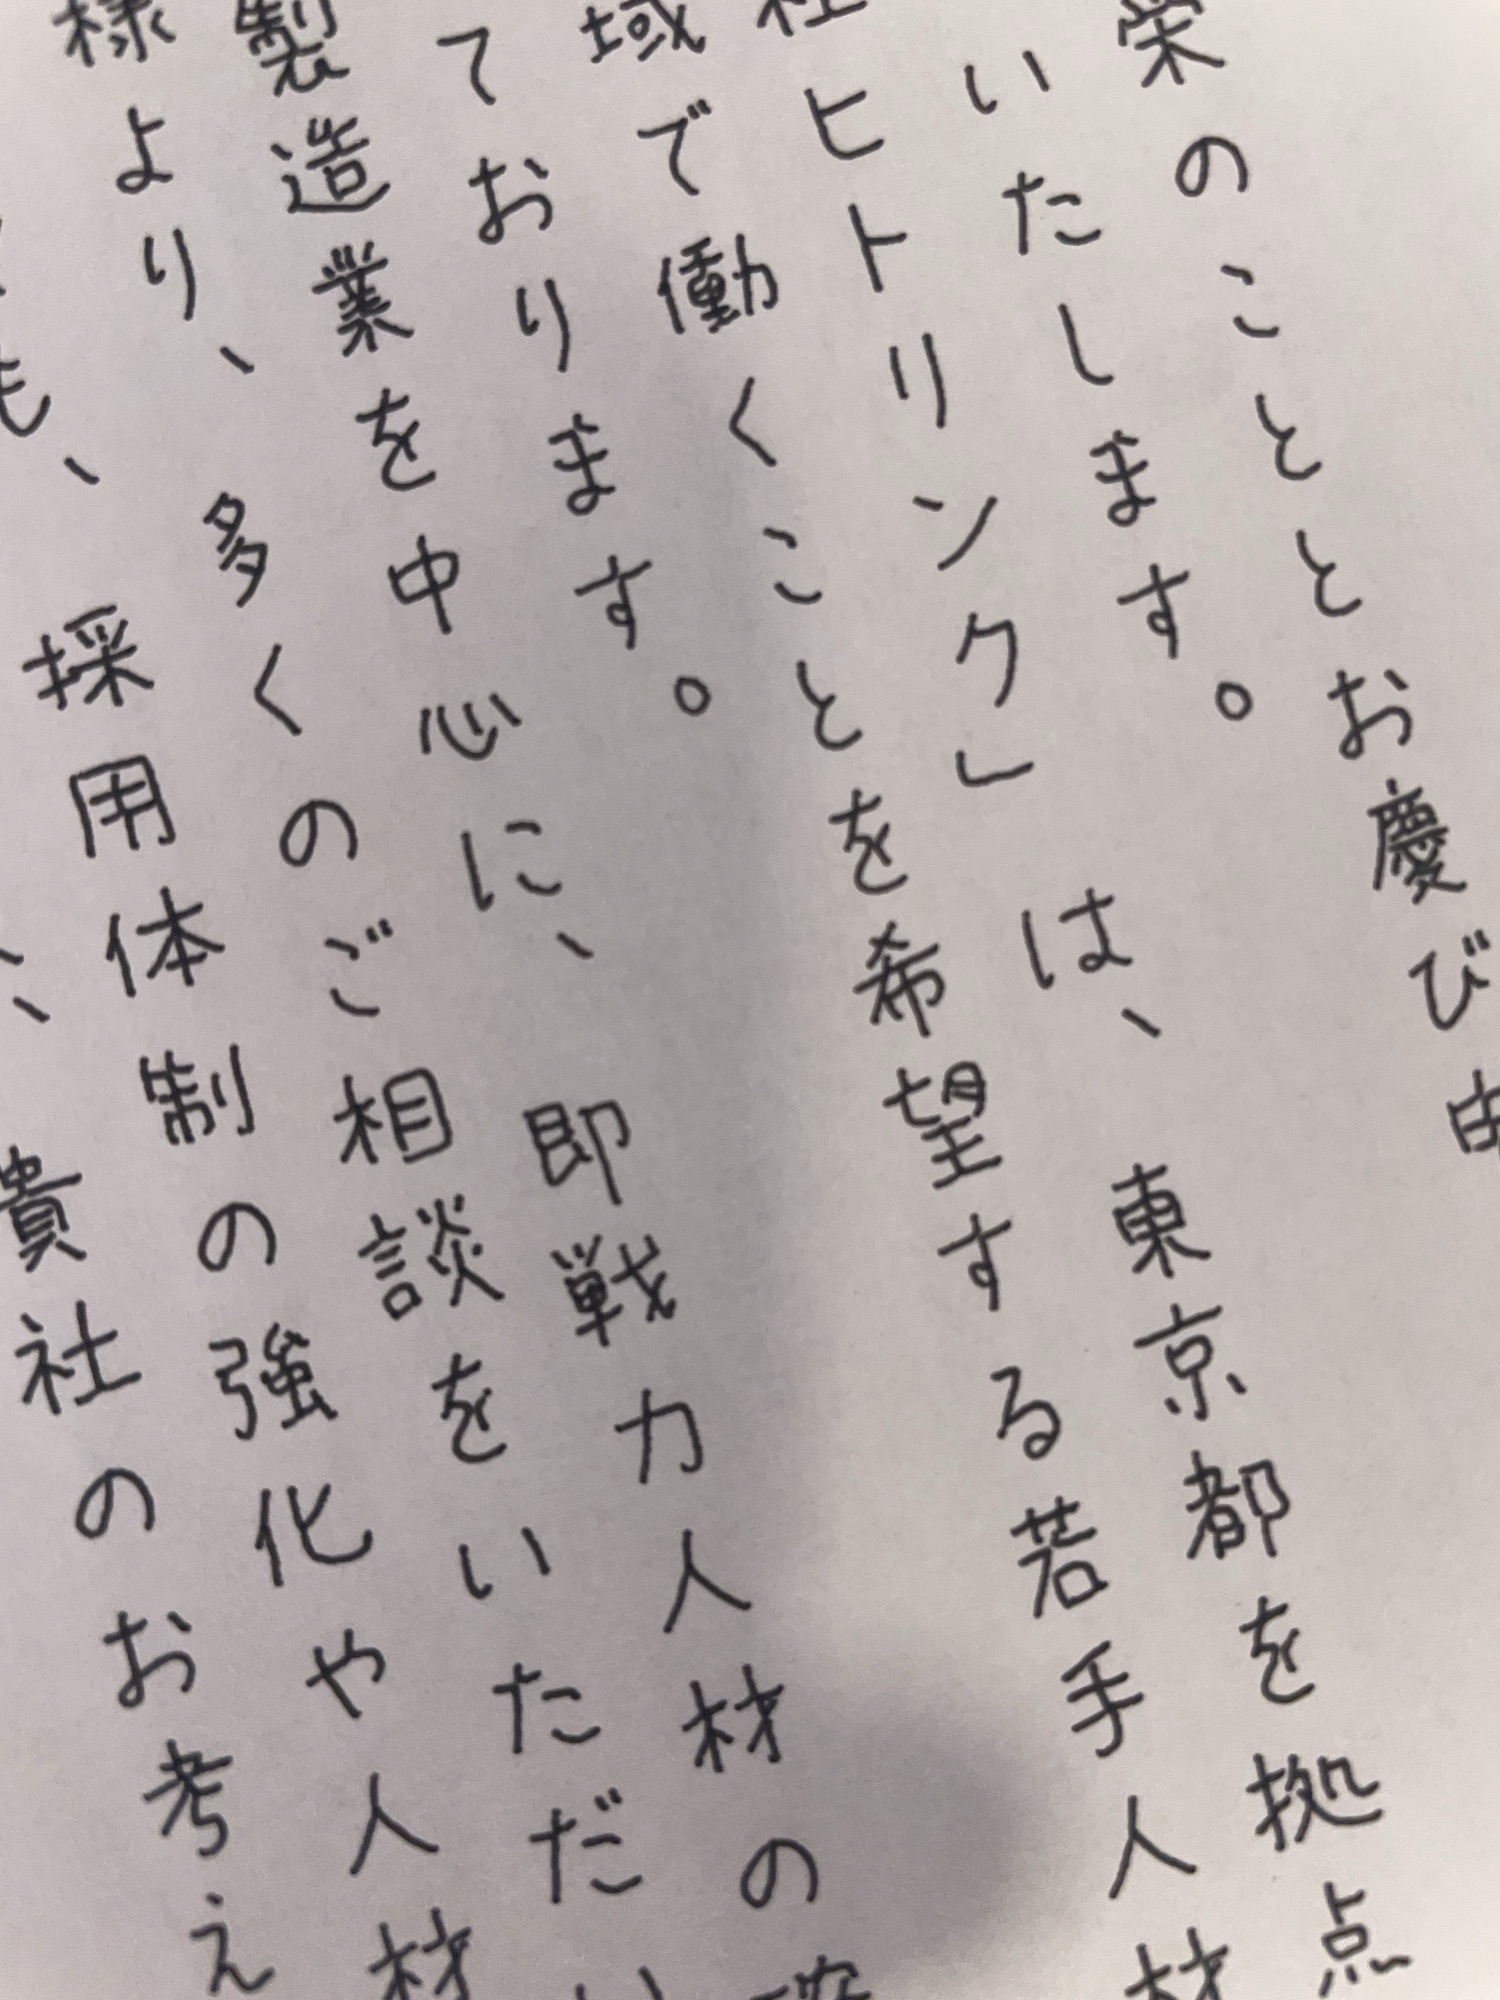 栄のこととお慶び申
いたします。
ヒトリンク」は、東京都を拠点
域で働くことを希望する若手人材
ております。
製造業を中心に、即戦力人材の
様より、多くのご相談をいただ
も、採用体制の強化や人材
、貴社のお考え